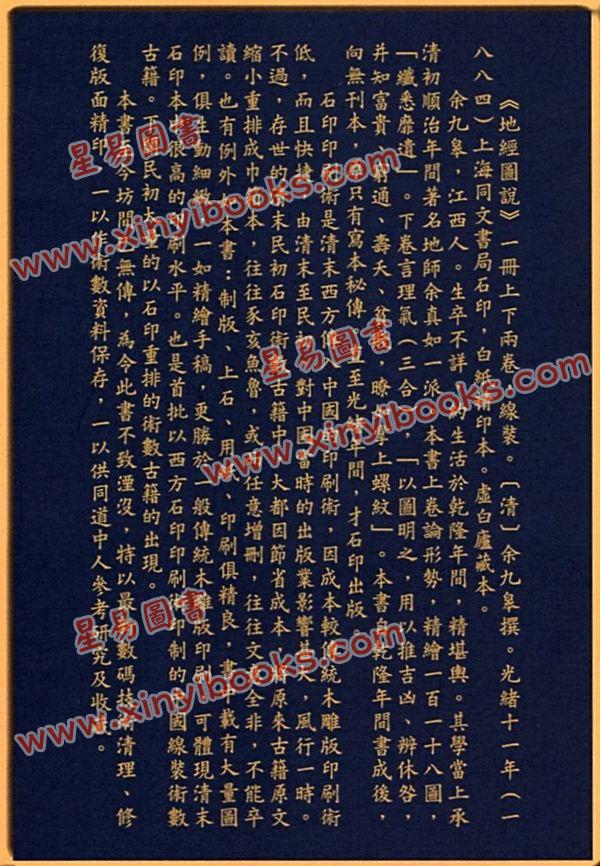 《地經圖說》一冊上下兩卷線裝。〔清〕余九皋撰。光緒十一年（一
八八四）上海同文書局石印，白紙精印本。虛白廬藏本。
余九皋，江西人。生卒不詳，生活於乾隆年間，精堪輿。其學當上承
清初順治年間著名地師余真如一派。本書上卷論形勢，精繪一百一十八圖，
「纖悉靡遺」。下卷言理氣（三合），「以圖明之，用以推吉凶、辨休咎，
并知富貴、窮通、壽夭、貧，瞭掌上螺紋」。本書自乾隆年間書成後，
向無刊本，只有寫本秘傳，至光緒年間，才石印出版。
石印印刷術是清末西方傳入中國的印刷術，因成本較傳統木雕版印刷術
低，而且快捷，由清末至民初，對中國當時的出版業影響甚大，風行一時。
不過，存世的清末民初石印術數古籍中，大都因節省成本，將原來古籍原文
縮小重排成巾箱本，往往豕亥魯魚，或任意增刪，往往文義全非，不能卒
讀。也有例外，本書：制版、上石、用紙、印刷俱精良，書中載有大量圖
例，俱生動細緻，一如精繪手稿，更勝於一般傳統木雕版印刷，可體現清末
石印本很高的印刷水平。也是首批以西方石印印刷術印制的中國線裝術數
古籍。下民初大量的以石印重排的術數古籍的出現。
本書今坊間無傳，為令此書不致湮沒，特以最新數碼技術清理、修
復版面精印，一以作術數資料保存，一以供同道中人參考研究及收藏。
星易圖書
www.xinyibooks.com
星易圖書
www.xinyibooks.com
星易圖書
www.xinyibooks.com